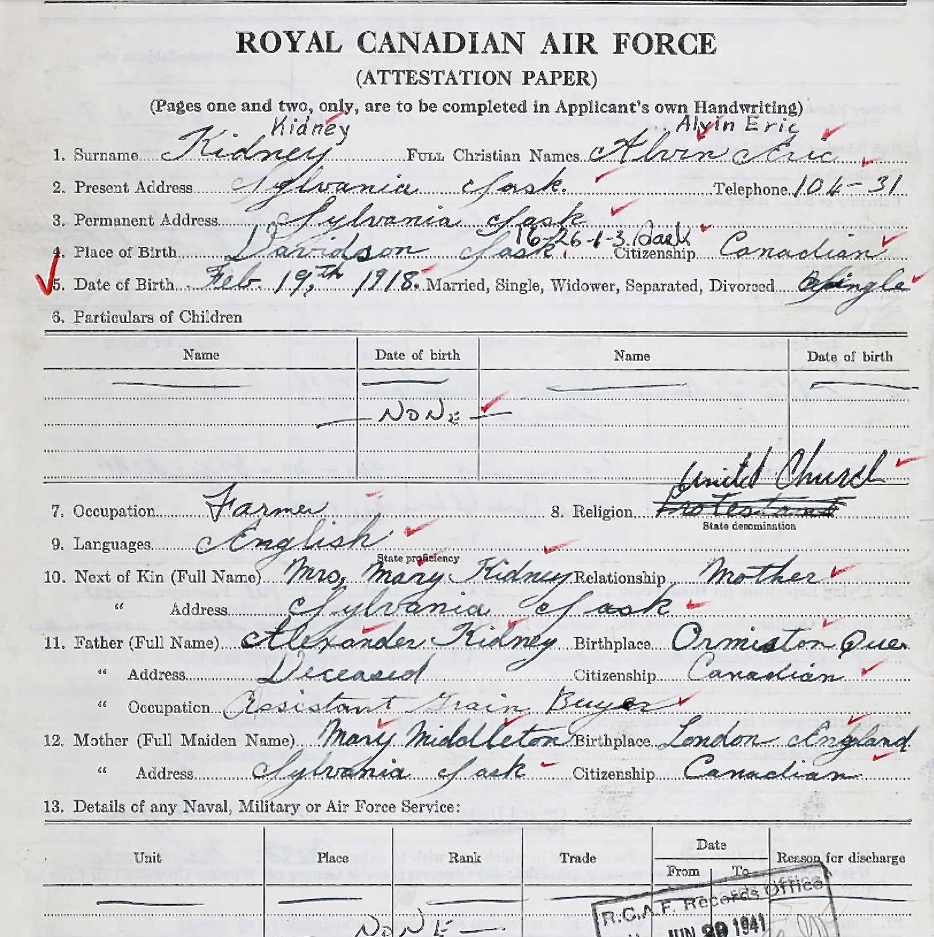 ROYAL CANADIAN AIR FORCE
(ATTESTATION PAPER)
(Pages one and two, only, are to be completed in Applicant's own Handwriting)
Kidney Alvin Eric
1. Surname Kidney FULL Christian Names Alvin Eric
2. Present Address Sylvania Sask. Telephone 104-31
3. Permanent Address Sylvania Sask
16-26-1-3
4. Place of Birth Davidson Sask. Citizenship Canadian
5. Date of Birth Feb 19th 1918. Married, Single, Widower, Separated, Divorced Single
6. Particulars of Children
Name Date of birth Name Date of birth
NONE
United Church
7. Occupation Farmer 8. Religion Protestant
State denomination
9. Languages English
State proficiency
10. Next of Kin (Full Name) Mrs, Mary Kidney Relationship Mother
" Address Sylvania Sask
11. Father (Full Name) Alexander Kidney Birthplace Ormiston Que.
" Address Deceased Citizenship Canadian
" Occupation Assistant Grain Buyer
12. Mother (Full Maiden Name) Mary Middleton Birthplace London England
" Address Sylvania Sask Citizenship Canadian
13. Details of any Naval, Military or Air Force Service:
Unit Place Rank Trade Date From To Reason for discharge
R.C.A.F. Records Office
NONE JUN 1941